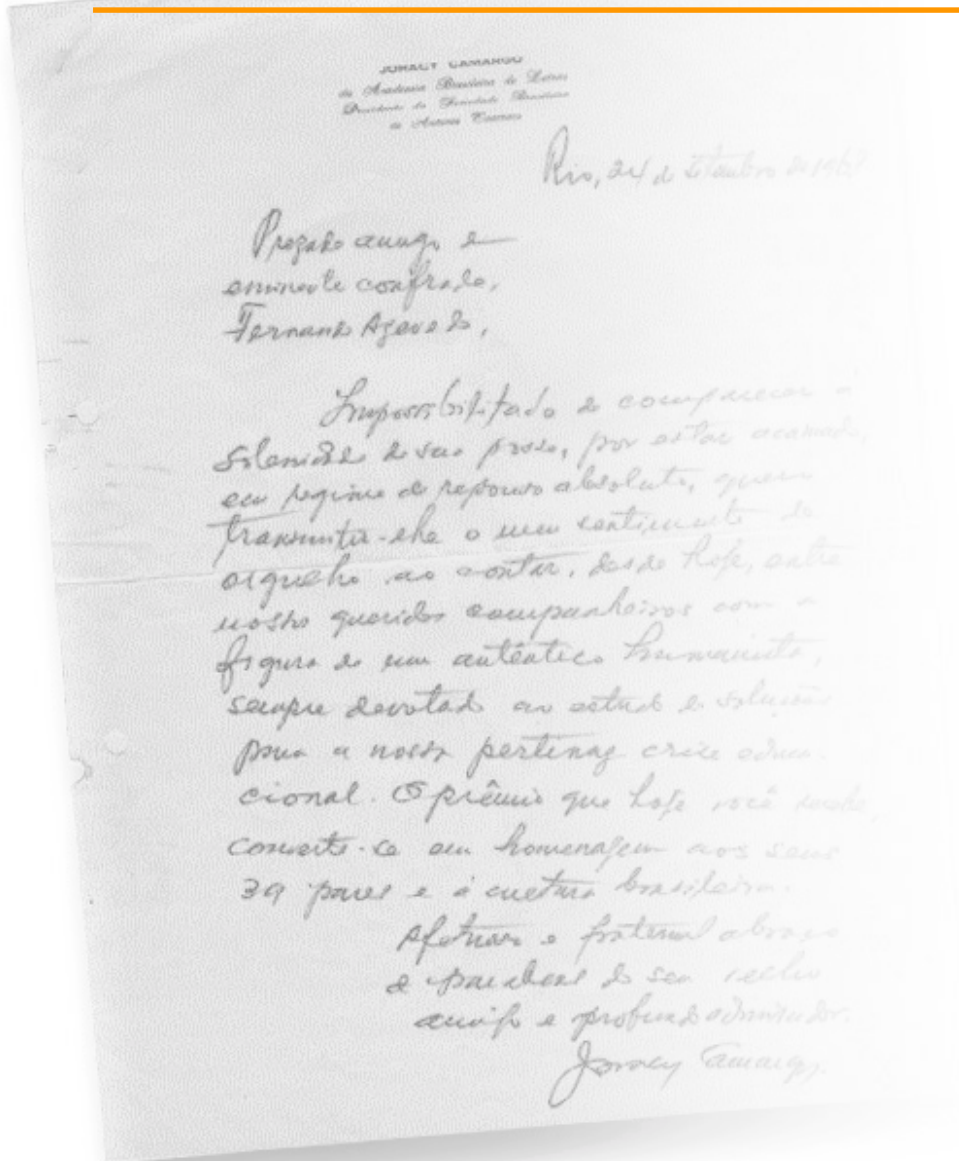 JORACY CAMARGO
da Academia Brasileira de Letras
Presidente da Sociedade Brasileira
de Autores Teatrais
Rio, 24 de setembro de 196
Prezado amigo e
eminente confrade,
Fernando Azevedo,
Impossibilitado de comparecer à
solenidade de sua posse, por estar acamado,
em regime de repouso absoluto, quero
transmitir-lhe o meu sentimento de
orgulho ao contar, desde hoje, entre
nossos queridos companheiros com a
figura de um autêntico humanista,
sempre devotado ao estudo e solução
para a nossa pertinaz crise educa-
cional. O prêmio que hoje você recebe,
converte-se em homenagem aos seus
39 pares e à cultura brasileira.
Afetuoso e fraternal abraço
e parabens do seu velho
amigo e profundo admirador.
Joracy Camargo.